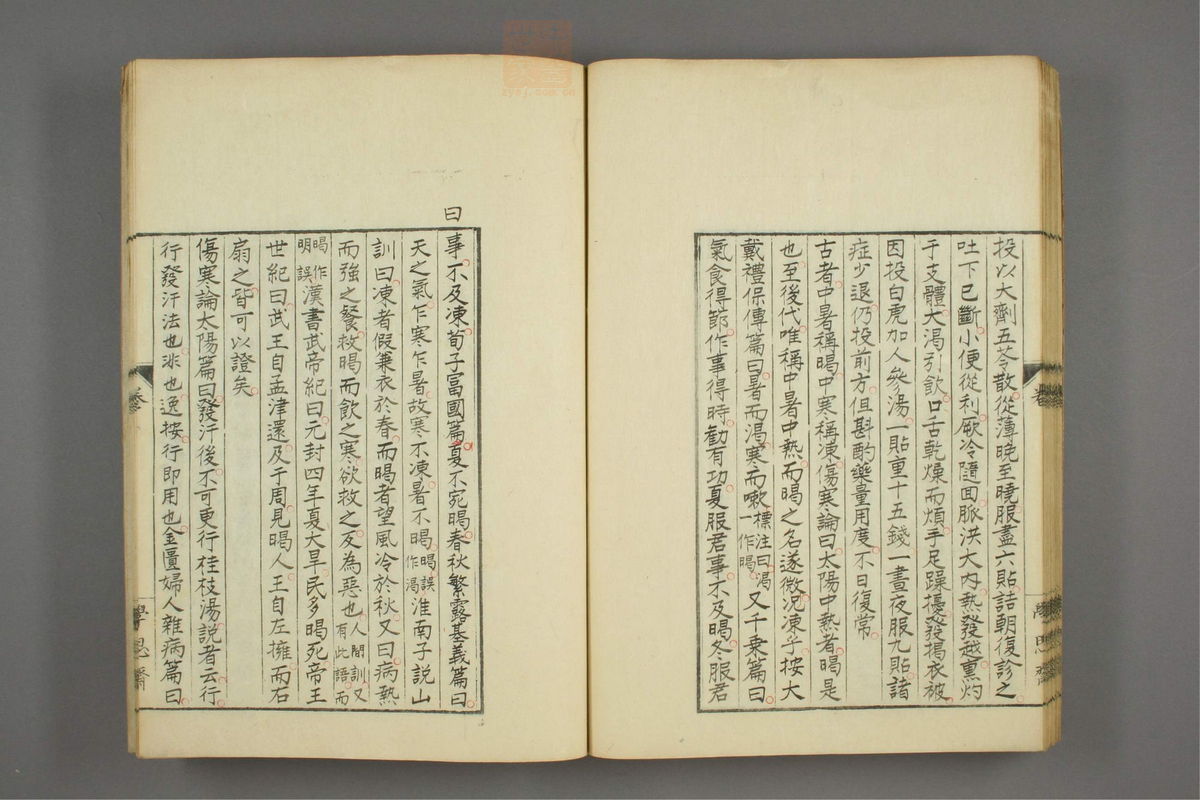 投以大劑五苓散從薄晚至曉服盡六貼詰朝復診之
吐下已斷小便從利厥冷隨回脈洪大內熱發越熏灼
于支體大渴引飲口舌乾燥而煩手足躁擾發揭衣被
因投白虎加人參湯一貼重十五錢一晝夜服九貼諸
症少退仍投前方但斟酌藥量用度不日復常
古者中暑稱暍中寒稱凍傷寒論曰太陽中熱者暍是
也至後代唯稱中暑中熱而暍之名遂微況凍乎按大
戴禮保傳篇曰暑而渴寒而嗽標注曰渴一作暍又千乘篇曰
氣食得節作事得時勸有功夏服君事不及暍冬服君
曰
事不及凍荀子富國篇夏不宛暍春秋繁露基義篇曰
天之氣乍寒乍暑故寒不凍暑不暍暍誤作渴淮南子說山
訓曰凍者假兼衣於春而暍者望風冷於秋又曰病熱
而強之餐救暍而飲之寒欲救之反為惡也人間訓又有此語而
暍作明誤漢書武帝紀曰元封四年夏大旱民多暍死帝王
世紀曰武王自孟津還及于周見暍人王自左擁而右
扇之皆可以證矣
傷寒論太陽篇曰發汗後不可更行桂枝湯說者云行
行發汗法也非也逸按行即用也金匱婦人雜病篇曰
卷
學思齋